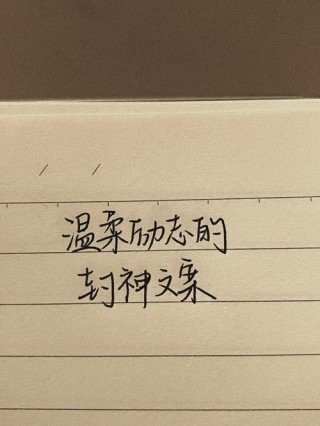 温柔励志的
封神文案